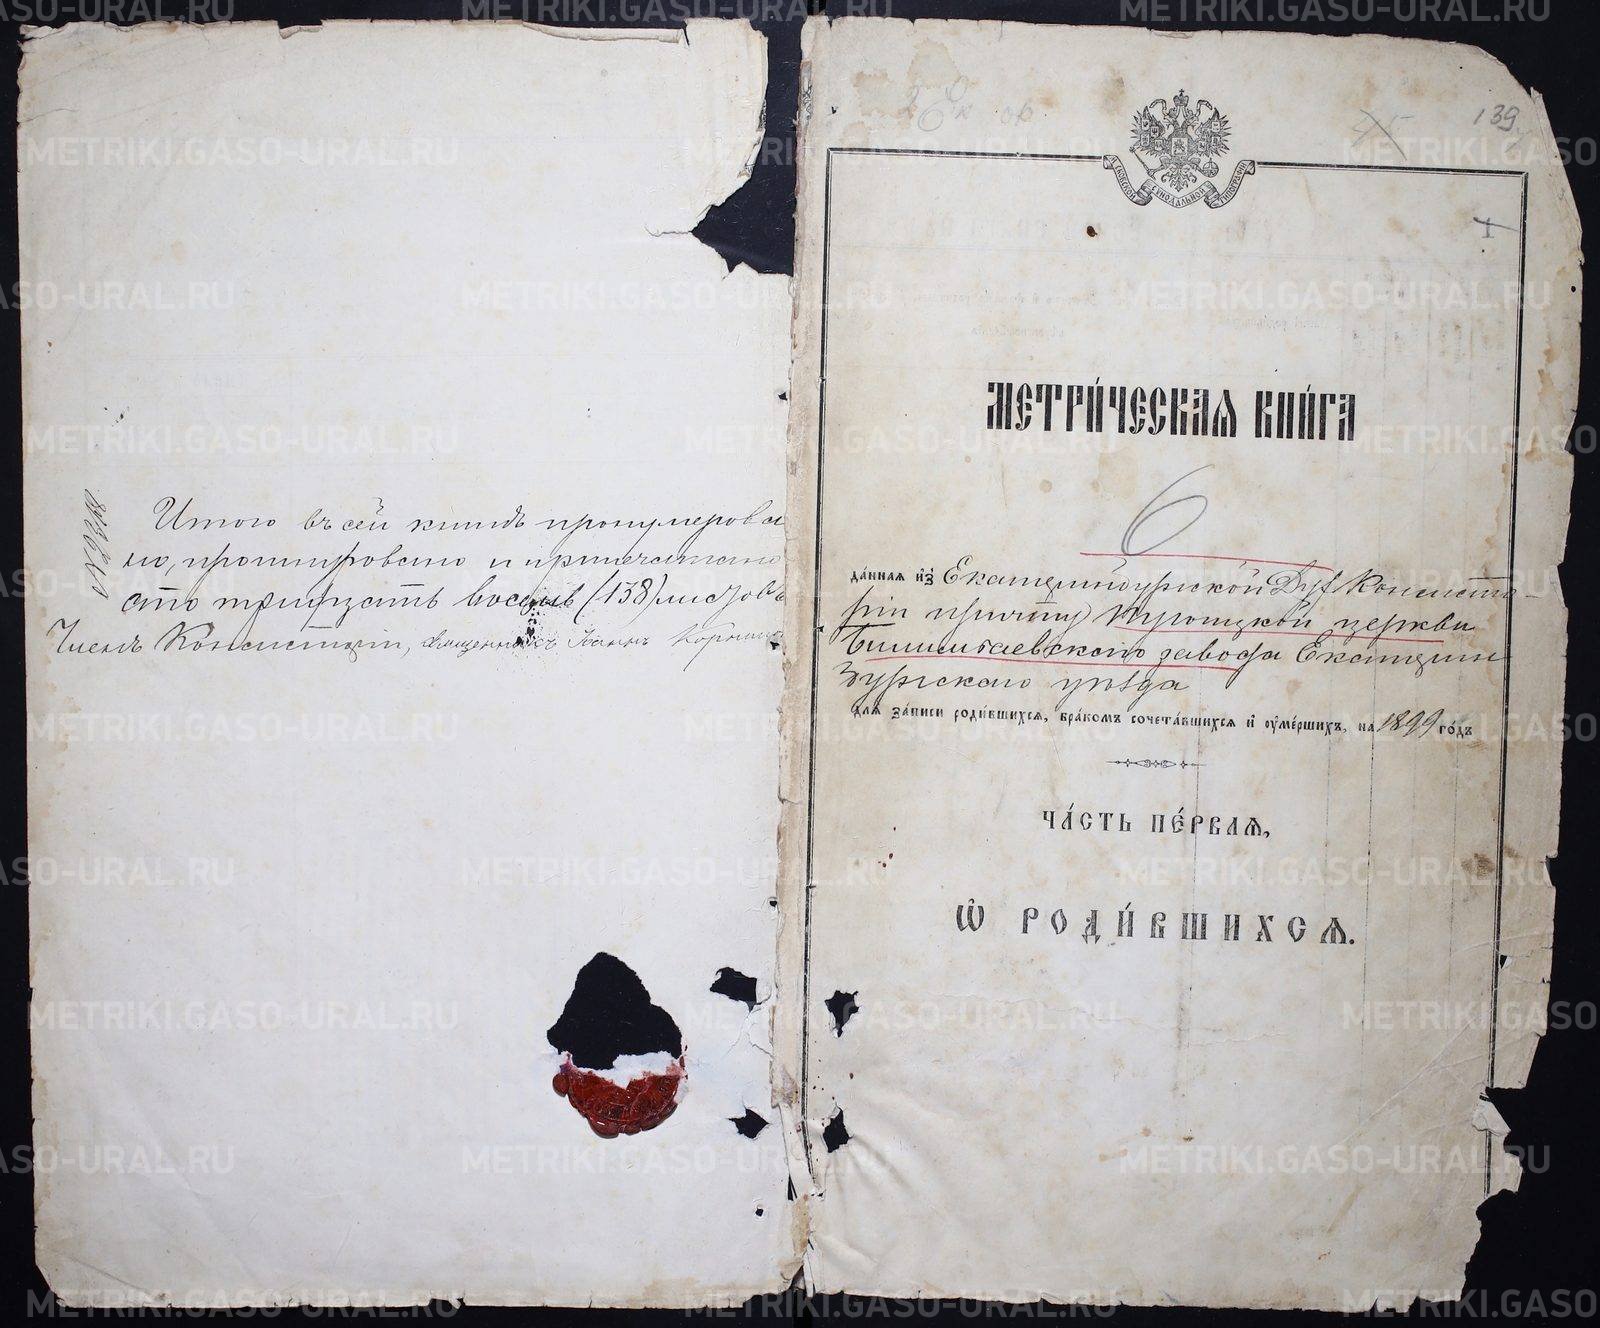 Итого въ сей книгѣ пронумерова
но, прошнуровано и припечатано
сто тридцать восемь (138) листовъ
Членъ Консисторіи, священникъ Іоаннъ
139
I
МОСКОВСКОЙ СѴНОДАЛЬНОЙ ТИПОГРАФІИ
МЕТРИ́ЧЕСКАѦ КНИ́ГА
6
да́ннаѧ и҆з̾ Екатеринбургской Дух Консисто-
ріи причту Троицкой церкви
Билимбаевскаго завода Екатерин
бургскаго уѣзда
длѧ̀ за́писи роди́вшихсѧ, бра́комъ сочета́вшихсѧ и҆ ᲂу҆ме́ршихъ, на 1899 го́дъ
ЧА́СТЬ ПЕ́РВАѦ,
Ѡ҆ РОДИ́ВШИХСѦ.
METRIKI.GASO-URAL.RU